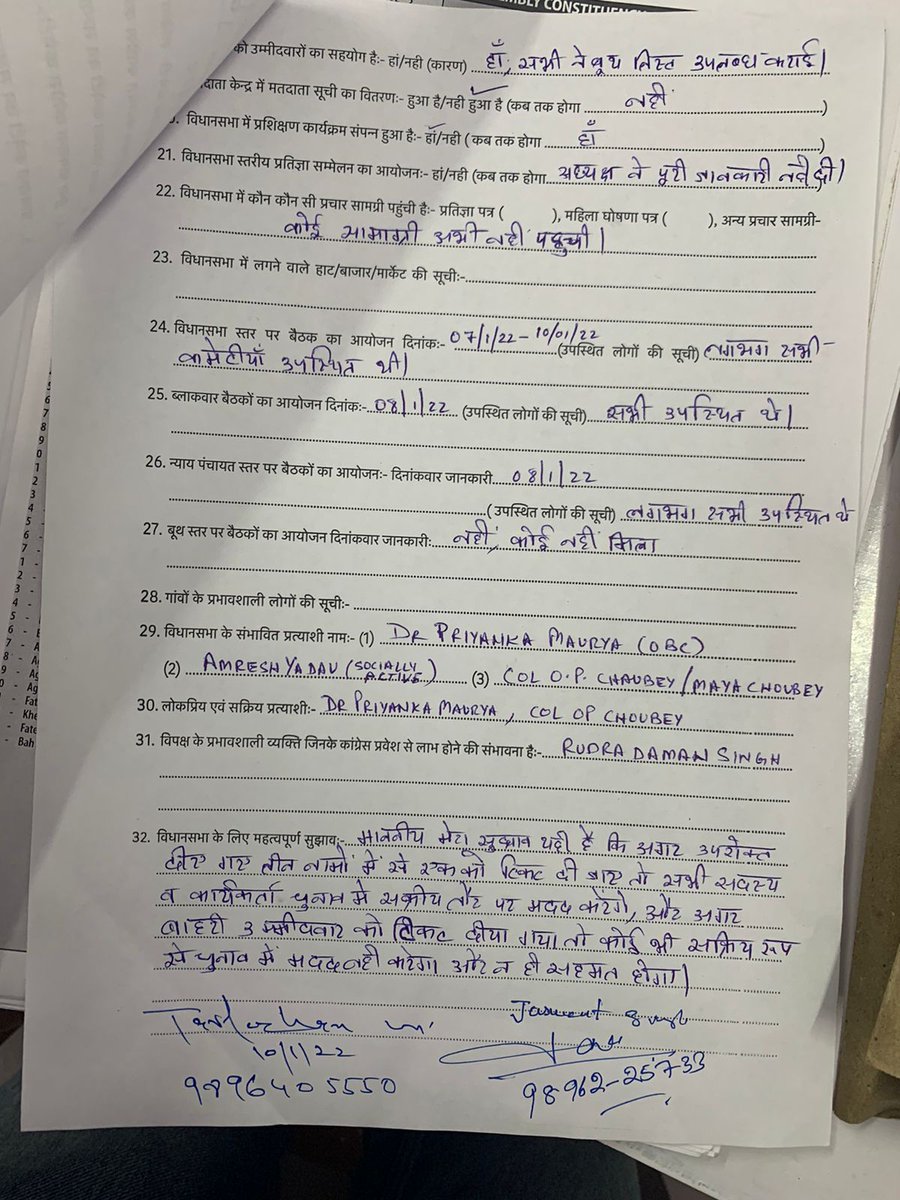 MBLY CONSTITUENC
को उम्मीदवारों का सहयोग है:- हां/नही (कारण) हाँ, सभी ने बूथ लिस्ट उपलब्ध कराई।
दाता केन्द्र में मतदाता सूची का वितरण:- हुआ है/नही हुआ है (कब तक होगा नहीं )
. विधानसभा में प्रशिक्षण कार्यक्रम संपन्न हुआ है:- हाँ/नही ( कब तक होगा हाँ )
21. विधानसभा स्तरीय प्रतिज्ञा सम्मेलन का आयोजन:- हां/नही (कब तक होगा अध्यक्ष ने पूरी जानकारी नहीं दी।
22. विधानसभा में कौन कौन सी प्रचार सामग्री पहुंची है:- प्रतिज्ञा पत्र ( ), महिला घोषणा पत्र ( ), अन्य प्रचार सामग्री-
कोई सामाग्री अभी नहीं पहुची।
23. विधानसभा में लगने वाले हाट/बाजार/मार्केट की सूची:-
24. विधानसभा स्तर पर बैठक का आयोजन दिनांक:- 07/1/22 - 10/01/22 (उपस्थित लोगों की सूची) लगभग सभी -
कमेटीयाँ उपस्थित थी।
25. ब्लाकवार बैठकों का आयोजन दिनांक:- 08/1/22 (उपस्थित लोगों की सूची) सभी उपस्थित थे।
26. न्याय पंचायत स्तर पर बैठकों का आयोजन:- दिनांकवार जानकारी 08/1/22
( उपस्थित लोगों की सूची) लगभग सभी उपस्थित थे
27. बूथ स्तर पर बैठकों का आयोजन दिनांकवार जानकारी: नहीं, कोई नहीं मिला
28. गांवों के प्रभावशाली लोगों की सूची:-
29. विधानसभा के संभावित प्रत्याशी नाम:- (1) DR PRIYANKA MAURYA (OBC)
(2) AMRESH YADAV (SOCIALLY ACTIVE) (3) COL O.P. CHAUBEY / MAYA CHOUBEY
30. लोकप्रिय एवं सक्रिय प्रत्याशी:- DR PRIYANKA MAURYA, COL OP CHOUBEY
31. विपक्ष के प्रभावशाली व्यक्ति जिनके कांग्रेस प्रवेश से लाभ होने की संभावना है:- RUDRA DAMAN SINGH
32. विधानसभा के लिए महत्वपूर्ण सुझाव:- माननीय मेरा सुझाव यही है कि अगर उपरोक्त
दीए गए तीन नामों में से एक को टिकट दी जाए तो सभी सदस्य
व कार्यकर्ता चुनाव में सक्रीय तौर पर मदद करेंगे, और अगर
बाहरी उम्मीदवार को टिकट दीया गया तो कोई भी सक्रिय रूप
से चुनाव में मदद नही करेगा और न ही सहमत होगा।
Jaswant Singh
10/1/22
9896405550
98962-25733
Fat
Khe
Fate
Bah